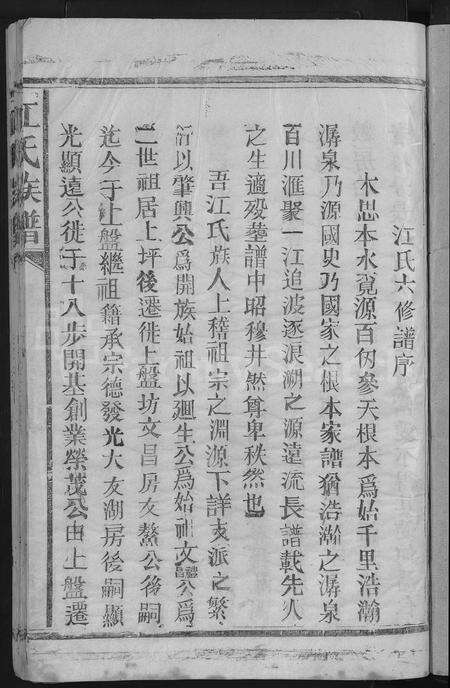 江氏六修譜序
木思本水覓源百仞參天根本爲始千里浩瀚
潺泉乃源國史乃國家之根本家譜猶浩瀚之潺泉
百川滙聚一江追波逐浪溯之源遠流長譜載先人
之生適歿塟譜中昭穆井然尊卑秩然也
吾江氏族人上稽祖宗之淵源下詳支派之繁
衍以肇興公爲開族始祖以迴生公爲始祖文
公爲
二世祖居上坪後遷徙上盤坊文昌房友鰲公後嗣
迄今于上盤繼祖籍承宗德發光大友湖房後嗣顯
光顯遠公徙于十八步開基創業榮茂公由上盤遷
江氏族譜